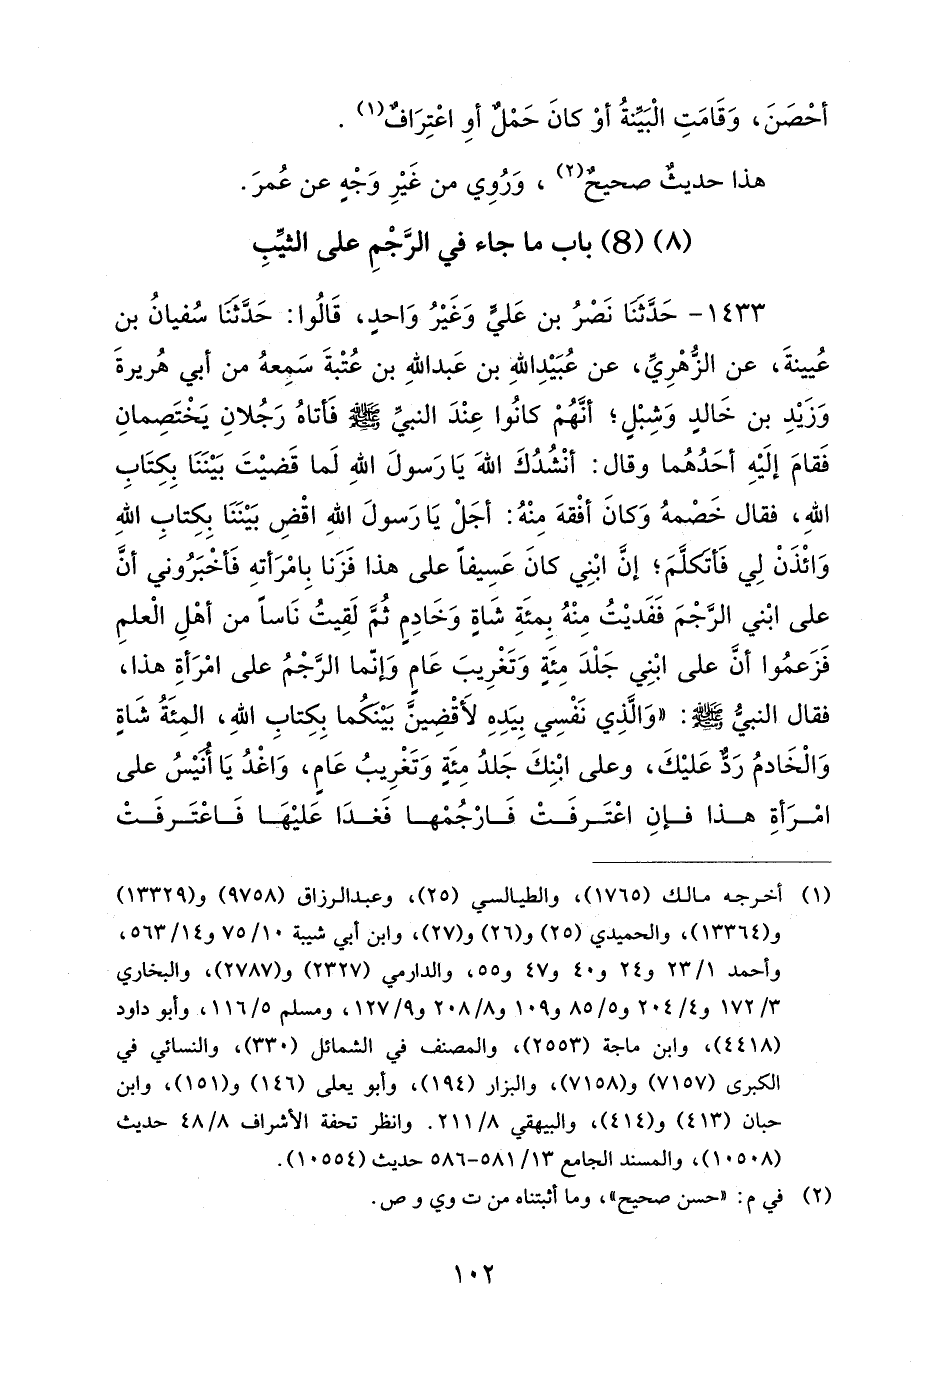 أحْصَنَ، وَقَامَتِ الْبَيِّنةُ أوْ كانَ حَمْلٌ أوِ اعْتِرَافٌ(١) .
هذا حديثٌ صحيحٌ(٢) ، وَرُوِي من غَيْرِ وَجْهٍ عن عُمرَ.
(٨) (8) باب ما جاء في الرَّجْمِ على الثيِّبِ
١٤٣٣- حَدَّثَنَا نَصْرُ بن عَليٍّ وَغَيْرُ وَاحدٍ، قَالُوا: حَدَّثَنَا سُفيانُ بن
عُيينةَ، عن الزُّهْرِيِّ، عن عُبَيْدِاللهِ بن عَبداللهِ بن عُتْبةَ سَمِعهُ من أبي هُريرةَ
وَزَيْدِ بن خَالدٍ وَشِبْلٍ؛ أنَّهُمْ كانُوا عِنْدَ النبيِّ ﷺ فَأتاهُ رَجُلانِ يَخْتَصِمانِ
فَقامَ إلَيْهِ أحَدُهُما وقال: أنْشُدُكَ اللهَ يَا رَسولَ اللهِ لَما قَضيْتَ بَيْنَنَا بِكتَابِ
اللهِ، فقال خَصْمهُ وَكانَ أفْقهَ مِنْهُ: أجَلْ يَا رَسولَ اللهِ اقْضِ بَيْنَنَا بِكتابِ اللهِ
وَائْذَنْ لِي فَأتَكلَّمَ؛ إنَّ ابْنِي كانَ عَسِيفاً على هذا فَزَنَا بِامْرَأتهِ فَأخْبَرُوني أنَّ
على ابْني الرَّجْمَ فَفَديْتُ مِنْهُ بِمئَةِ شَاةٍ وَخَادِمٍ ثُمَّ لَقِيتُ نَاساً من أهْلِ الْعلمِ
فَزَعمُوا أنَّ على ابْنِي جَلْدَ مِئَةٍ وَتَغْرِيبَ عَامٍ وَإنّما الرَّجْمُ على امْرَأةِ هذا،
فقال النبيُّ ﷺ: «وَالَّذِي نَفْسِي بِيَدِهِ لأقْضِينَّ بَيْنَكُما بِكتابِ اللهِ، المِئَةُ شَاةٍ
وَالْخَادمُ رَدٌّ عَليْكَ، وعلى ابْنِكَ جَلدُ مِئَةٍ وَتَغْرِيبُ عَامٍ، وَاغْدُ يَا أُنَيْسُ على
امْرَأةِ هذا فإنِ اعْتَرفَتْ فَارْجُمْها فَغدَا عَليْهَا فَاعْتَرفَتْ
(١) أخرجه مالك (١٧٦٥)، والطيالسي (٢٥)، وعبدالرزاق (٩٧٥٨) و(١٣٣٢٩)
و(١٣٣٦٤)، والحميدي (٢٥) و(٢٦) و(٢٧)، وابن أبي شيبة ١٠/ ٧٥ و١٤/ ٥٦٣،
وأحمد ١/ ٢٣ و٢٤ و٤٠ و٤٧ و٥٥، والدارمي (٢٣٢٧) و(٢٧٨٧)، والبخاري
٣/ ١٧٢ و٤/ ٢٠٤ و٥/ ٨٥ و١٠٩ و٨/ ٢٠٨ و٩/ ١٢٧، ومسلم ٥/ ١١٦، وأبو داود
(٤٤١٨)، وابن ماجة (٢٥٥٣)، والمصنف في الشمائل (٣٣٠)، والنسائي في
الكبرى (٧١٥٧) و(٧١٥٨)، والبزار (١٩٤)، وأبو يعلى (١٤٦) و(١٥١)، وابن
حبان (٤١٣) و(٤١٤)، والبيهقي ٨/ ٢١١. وانظر تحفة الأشراف ٨/ ٤٨ حديث
(١٠٥٠٨)، والمسند الجامع ١٣/ ٥٨١-٥٨٦ حديث (١٠٥٥٤).
(٢) في م: «حسن صحيح»، وما أثبتناه من ت وي و ص.
١٠٢